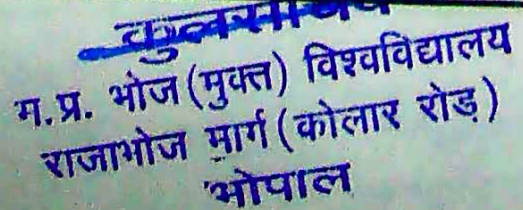 म.प्र. भोज (मुक्त) विश्वविद्यालय
राजाभोज मार्ग (कोलार रोड़)
भोपाल